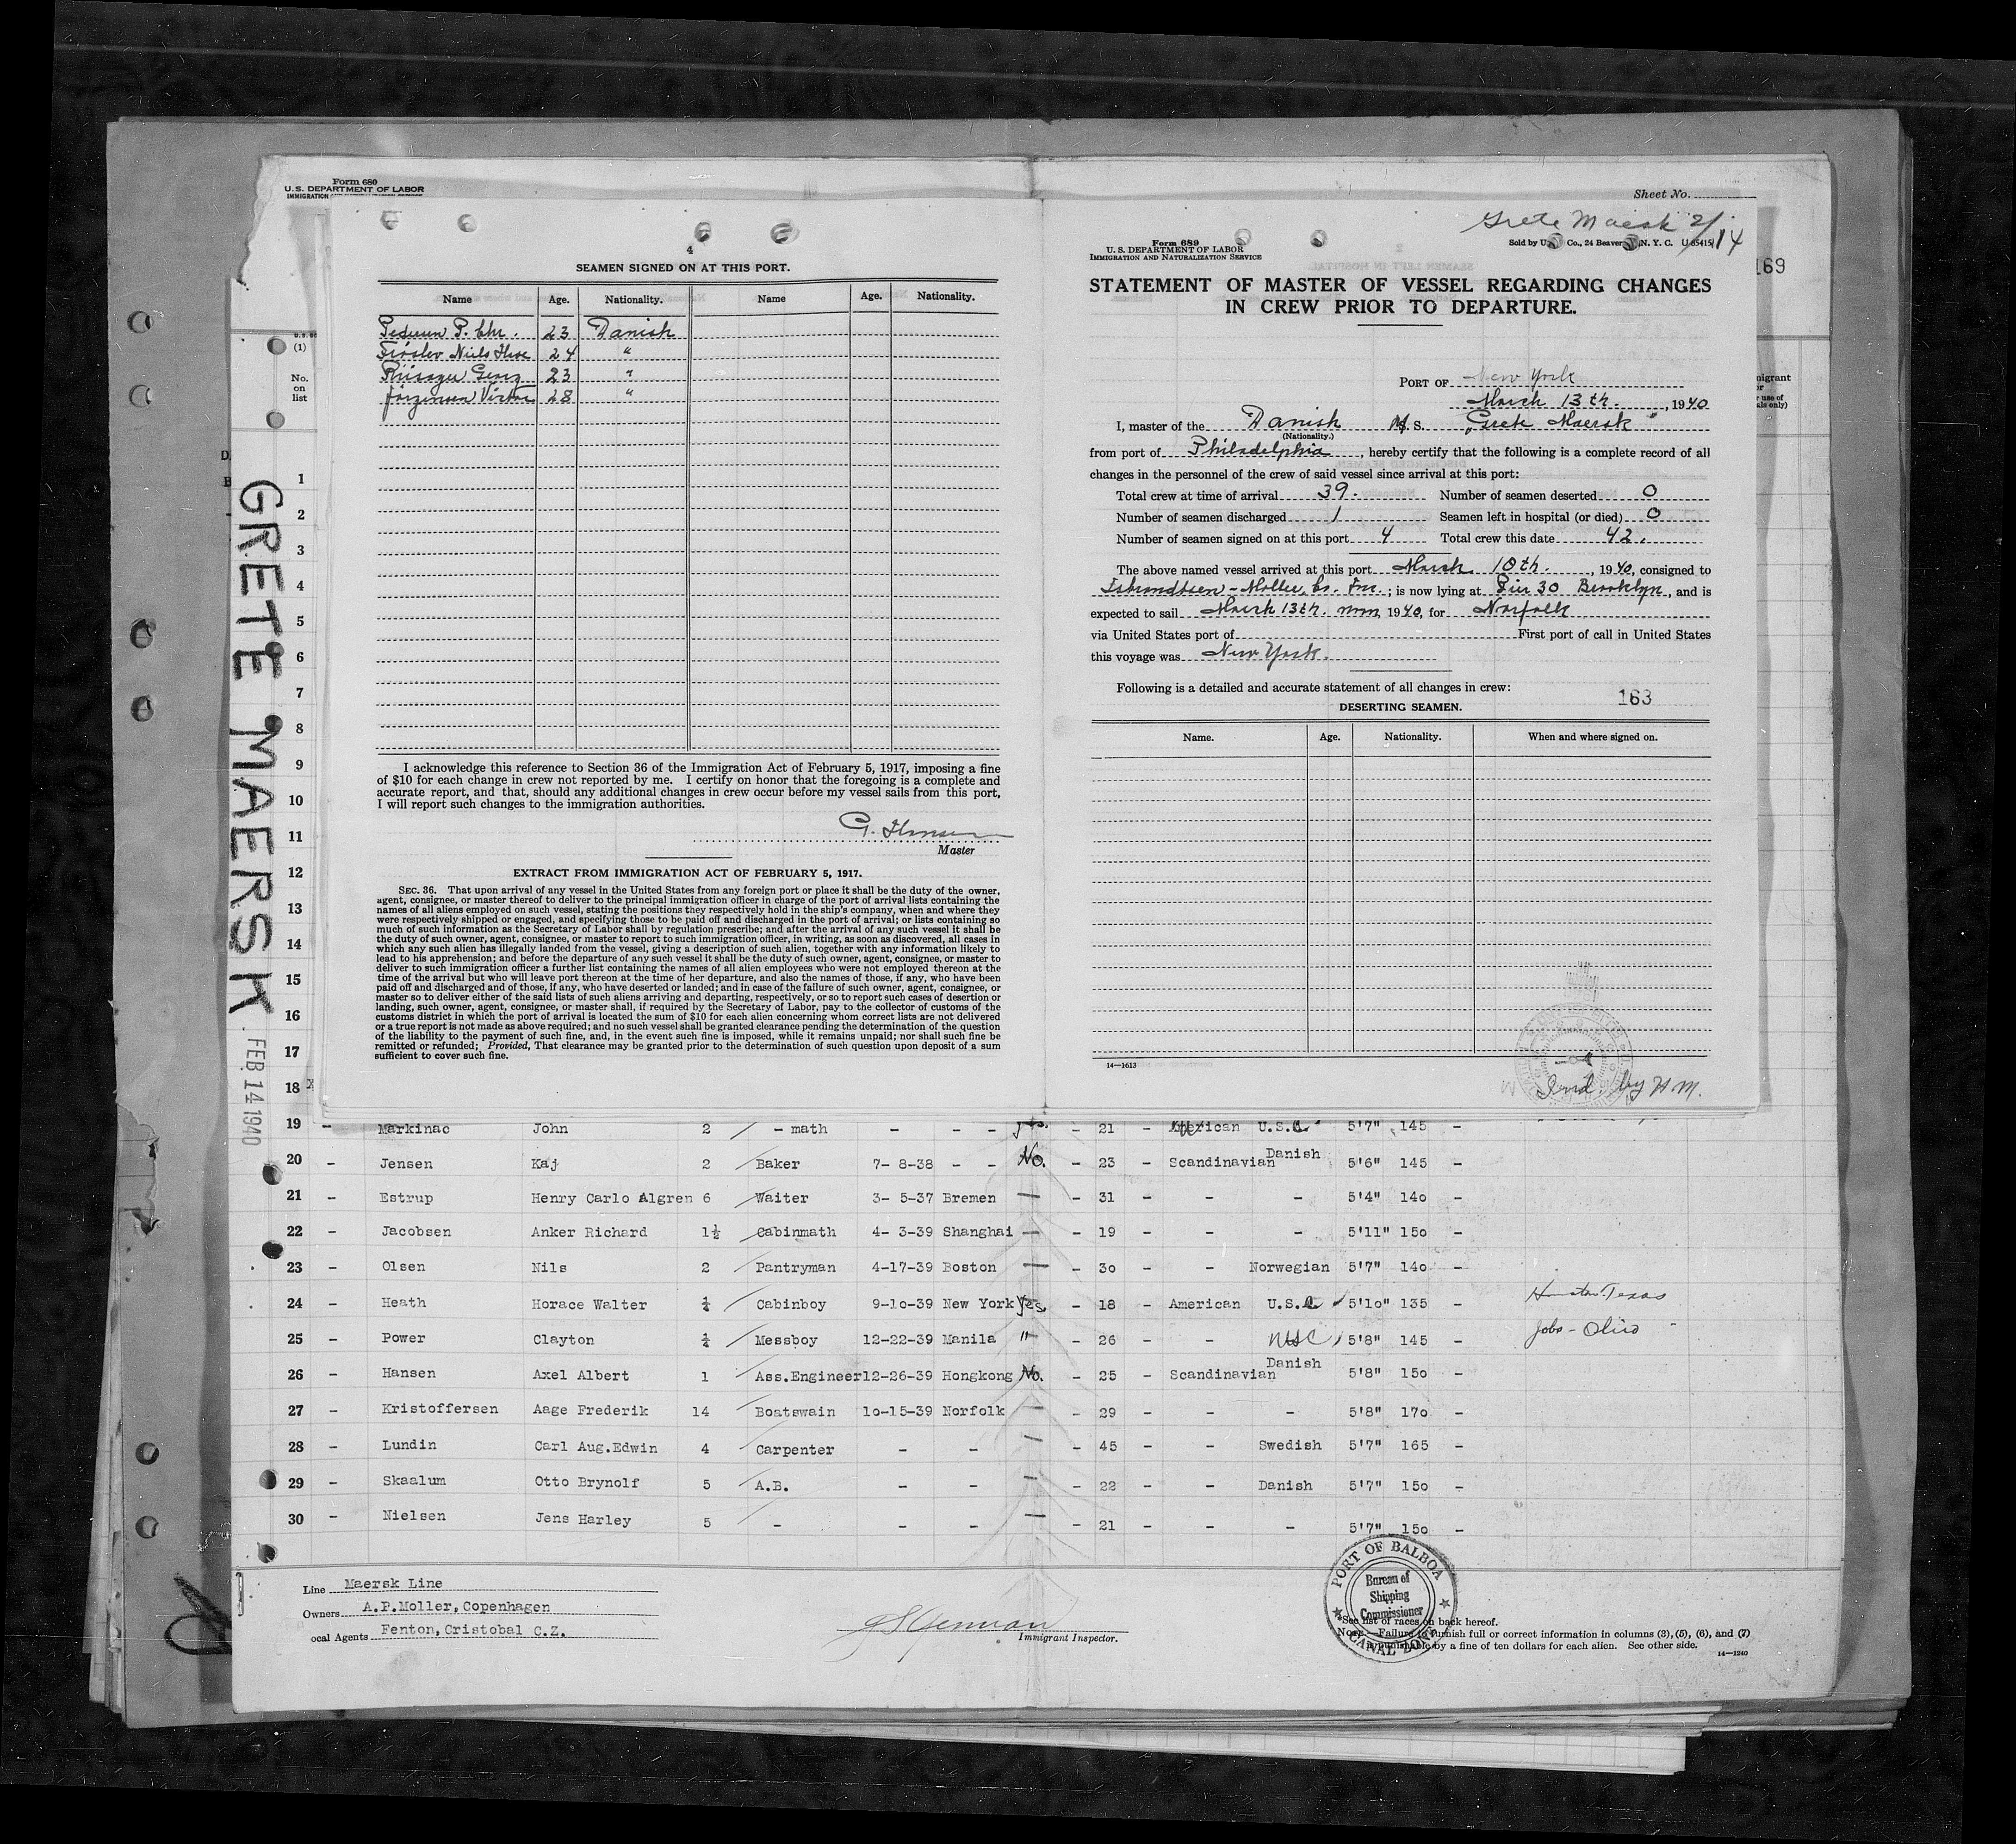 Form 680
U. S. DEPARTMENT OF LABOR
IMMIGRATION
Sheet No.
169
(1)
No.
on
list
GRETE MAERSK
FEB 14 1940
1
2
3
4
5
6
7
8
9
10
11
12
13
14
15
16
17
18
4
SEAMEN SIGNED ON AT THIS PORT.
Name Age. Nationality. Name Age. Nationality.
P. Chr. 23 Danish
Niels 24 "
23 "
Jörgensen Victor 28 "
I acknowledge this reference to Section 36 of the Immigration Act of February 5, 1917, imposing a fine
of $10 for each change in crew not reported by me. I certify on honor that the foregoing is a complete and
accurate report, and that, should any additional changes in crew occur before my vessel sails from this port,
I will report such changes to the immigration authorities.
G.
Master
EXTRACT FROM IMMIGRATION ACT OF FEBRUARY 5, 1917.
SEC. 36. That upon arrival of any vessel in the United States from any foreign port or place it shall be the duty of the owner,
agent, consignee, or master thereof to deliver to the principal immigration officer in charge of the port of arrival lists containing the
names of all aliens employed on such vessel, stating the positions they respectively hold in the ship's company, when and where they
were respectively shipped or engaged, and specifying those to be paid off and discharged in the port of arrival; or lists containing so
much of such information as the Secretary of Labor shall by regulation prescribe; and after the arrival of any such vessel it shall be
the duty of such owner, agent, consignee, or master to report to such immigration officer, in writing, as soon as discovered, all cases in
which any such alien has illegally landed from the vessel, giving a description of such alien, together with any information likely to
lead to his apprehension; and before the departure of any such vessel it shall be the duty of such owner, agent, consignee, or master to
deliver to such immigration officer a further list containing the names of all alien employees who were not employed thereon at the
time of the arrival but who will leave port thereon at the time of her departure, and also the names of those, if any, who have been
paid off and discharged and of those, if any, who have deserted or landed; and in case of the failure of such owner, agent, consignee, or
master so to deliver either of the said lists of such aliens arriving and departing, respectively, or so to report such cases of desertion or
landing, such owner, agent, consignee, or master shall, if required by the Secretary of Labor, pay to the collector of customs of the
customs district in which the port of arrival is located the sum of $10 for each alien concerning whom correct lists are not delivered
or a true report is not made as above required; and no such vessel shall be granted clearance pending the determination of the question
of the liability to the payment of such fine, and, in the event such fine is imposed, while it remains unpaid; nor shall such fine be
remitted or refunded; Provided, That clearance may be granted prior to the determination of such question upon deposit of a sum
sufficient to cover such fine.
Grete Maersk 2/14
Form 689
U. S. DEPARTMENT OF LABOR
IMMIGRATION AND NATURALIZATION SERVICE
Sold by Co., 24 Beaver N. Y. C.
STATEMENT OF MASTER OF VESSEL REGARDING CHANGES
IN CREW PRIOR TO DEPARTURE.
PORT OF New York
March 13th. , 1940
I, master of the Danish M. S. "Grete Maersk"
(Nationality.)
from port of Philadelphia , hereby certify that the following is a complete record of all
changes in the personnel of the crew of said vessel since arrival at this port:
Total crew at time of arrival 39. Number of seamen deserted 0
Number of seamen discharged 1 Seamen left in hospital (or died) 0
Number of seamen signed on at this port 4 Total crew this date 42.
The above named vessel arrived at this port March 10th. , 1940, consigned to
Moller, Co. Inc. ; is now lying at Pier 30 Brooklyn , and is
expected to sail March 13th. noon, 1940, for Norfolk
via United States port of First port of call in United States
this voyage was New York.
Following is a detailed and accurate statement of all changes in crew:
163
DESERTING SEAMEN.
Name. Age. Nationality. When and where signed on.
14—1613
by H M.
19 - Markinac John 2 - math - - - - 21 - American U.S. 5'7" 145 -
20 - Jensen Kaj 2 Baker 7- 8-38 - - No. - 23 - Scandinavian Danish 5'6" 145 -
21 - Estrup Henry Carlo Algren 6 Waiter 3- 5-37 Bremen — - 31 - - - 5'4" 140 -
22 - Jacobsen Anker Richard 1½ Cabinmath 4- 3-39 Shanghai — - 19 - - - 5'11" 150 -
23 - Olsen Nils 2 Pantryman 4-17-39 Boston — - 30 - - Norwegian 5'7" 140 -
24 - Heath Horace Walter ¼ Cabinboy 9-10-39 New York Yes. - 18 - American U.S. 5'10" 135 - Houston Texas
25 - Power Clayton ¼ Messboy 12-22-39 Manila " - 26 - - USC 5'8" 145 - Ohio
26 - Hansen Axel Albert 1 Ass.Engineer 12-26-39 Hongkong No. - 25 - Scandinavian Danish 5'8" 150 -
27 - Kristoffersen Aage Frederik 14 Boatswain 10-15-39 Norfolk — - 29 - - - 5'8" 170 -
28 - Lundin Carl Aug.Edwin 4 Carpenter - - — - 45 - - Swedish 5'7" 165 -
29 - Skaalum Otto Brynolf 5 A.B. - - — - 22 - - Danish 5'7" 150 -
30 - Nielsen Jens Harley 5 - - - — - 21 - - - 5'7" 150 -
Line Maersk Line
Owners A.P.Moller, Copenhagen
ocal Agents Fenton, Cristobal C.Z.
Immigrant Inspector.
PORT OF BALBOA
Bureau of
Shipping
Commissioner
CANAL ZONE
See list of races on back hereof.
NOTE.—Failure to furnish full or correct information in columns (3), (5), (6), and (7)
is punishable by a fine of ten dollars for each alien. See other side.
14—1240